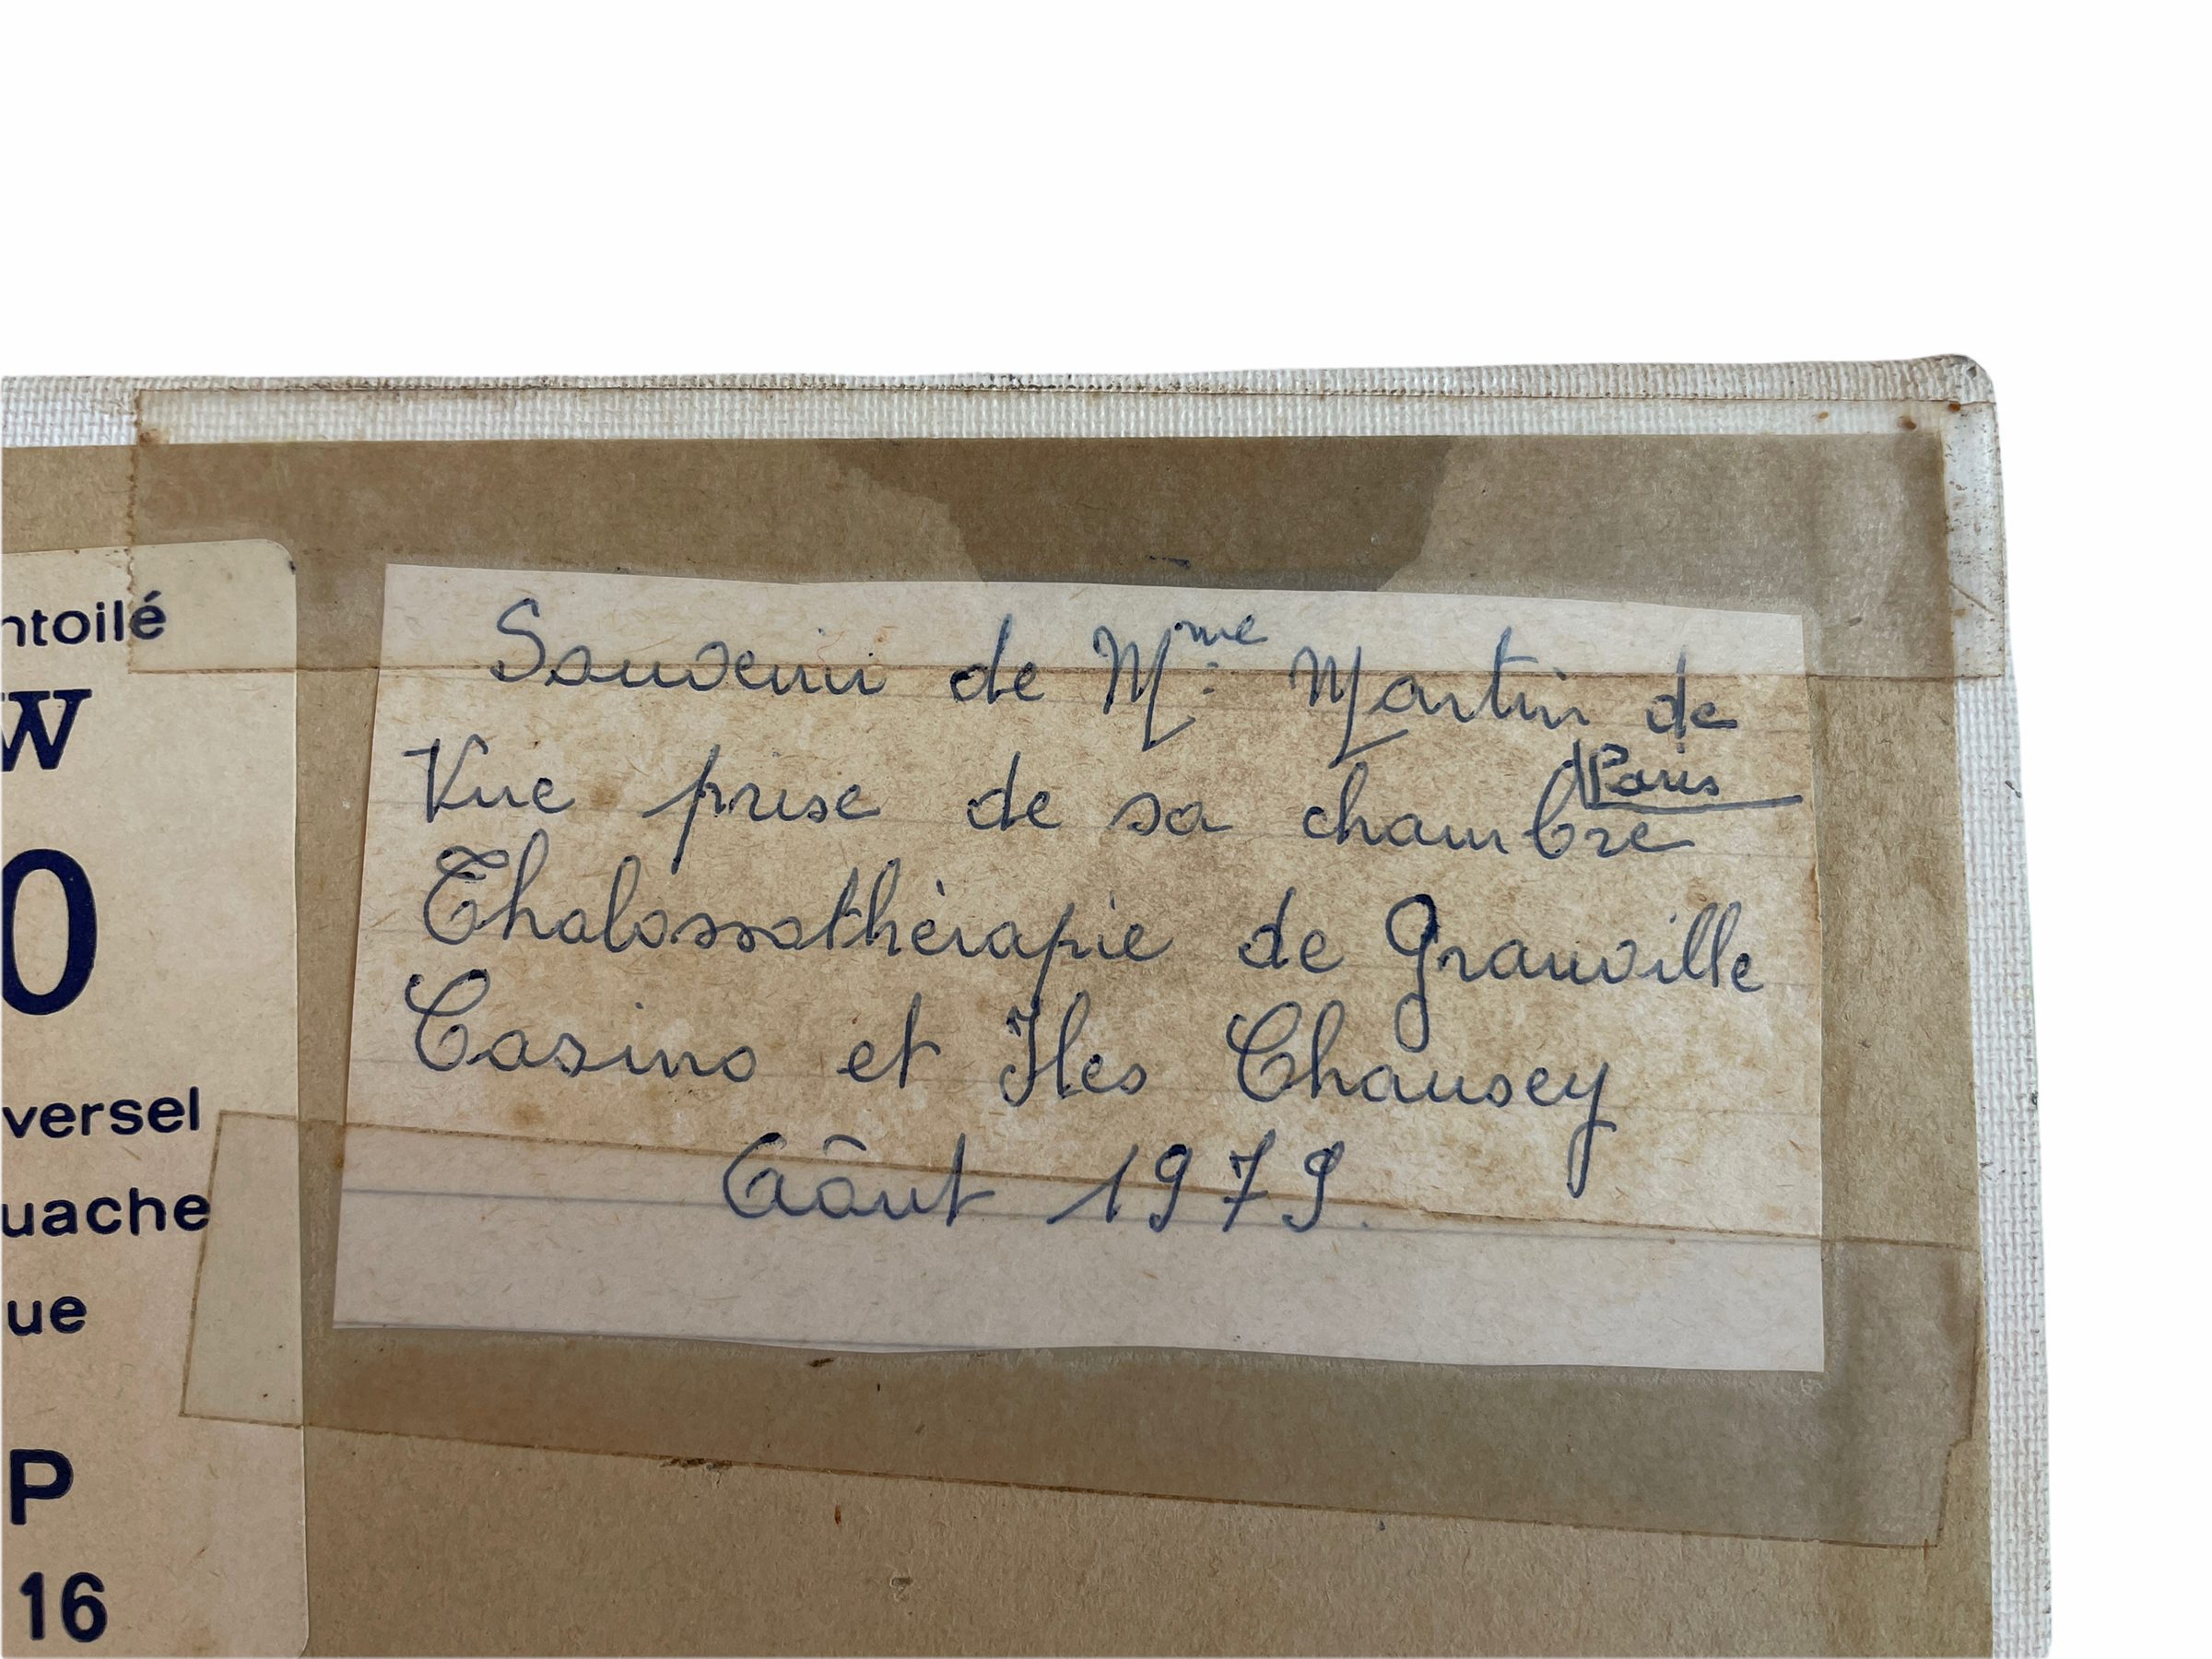 ntoilé
W
0
versel
uache
ue
P
16
Souvenir de Mme. Martin de
Paris
Vue prise de sa chambre
Thalassothérapie de Granville
Casino et Iles Chausey
Aôut 1979.